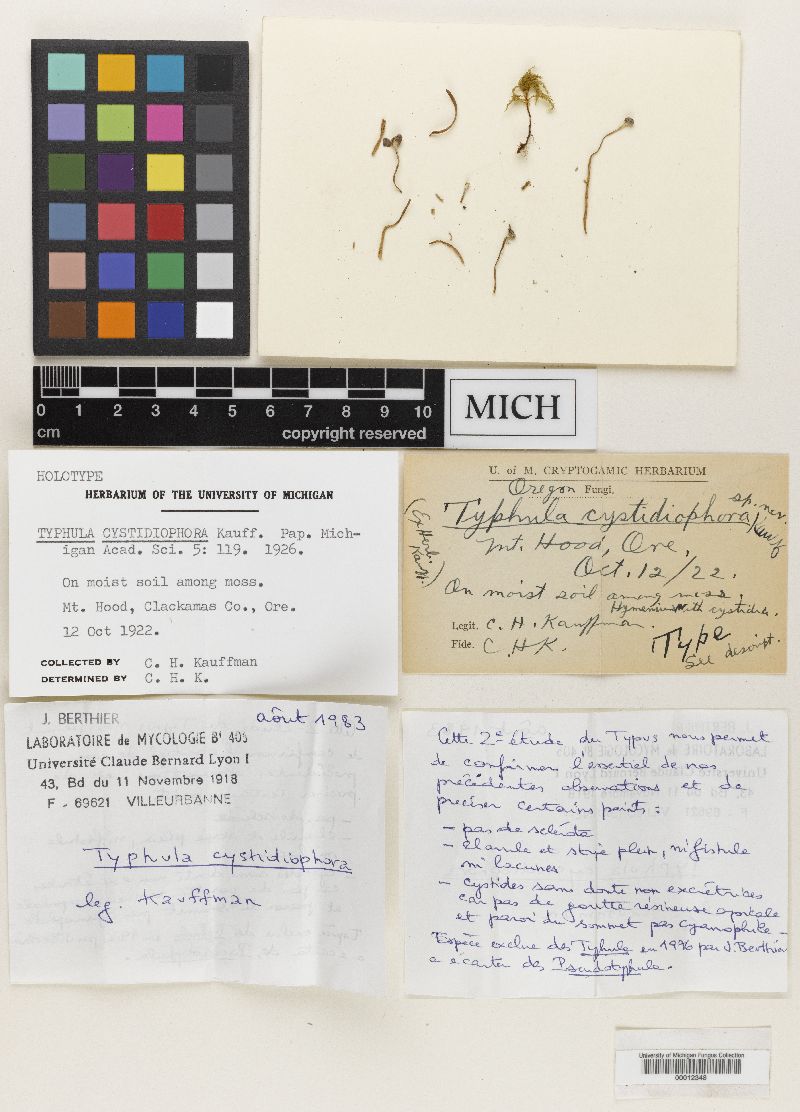 0 1 2 3 4 5 6 7 8 9 10
cm
copyright reserved
MICH
HOLOTYPE
HERBARIUM OF THE UNIVERSITY OF MICHIGAN
TYPHULA CYSTIDIOPHORA Kauff. Pap. Mich-
igan Acad. Sci. 5: 119. 1926.
On moist soil among moss.
Mt. Hood, Clackamas Co., Ore.
12 Oct 1922.
COLLECTED BY C. H. Kauffman
DETERMINED BY C. H. K.
U. of M. CRYPTOGAMIC HERBARIUM
Oregon Fungi.
Typhula cystidiophora sp. nov.
Kauff
(Ex Herb.
Kauff.)
Mt. Hood, Ore.
Oct. 12/22.
On moist soil among moss.
Hymenium with cystidia.
Legit. C. H. Kauffman.
Fide. C. H. K.
Type
See descript.
J. BERTHIER
août 1983
LABORATOIRE de MYCOLOGIE Bt 405
Université Claude Bernard Lyon I
43, Bd du 11 Novembre 1918
F - 69621 VILLEURBANNE
Typhula cystidiophora
leg. Kauffman
Cette 2e étude du Typus nous permet
de confirmer l'essentiel de nos
précédentes observations et de
préciser certains points :
- pas de sclérote
- clavule et stipe plein, ni fistule
ni lacunes
- cystides sans doute non excrétrices
car pas de goutte résineuse apicale
et paroi du sommet pas cyanophile -
Espèce exclue des Typhula en 1976 par J. Berthier
a écarter des Pseudotyphula.
University of Michigan Fungus Collection
00012348